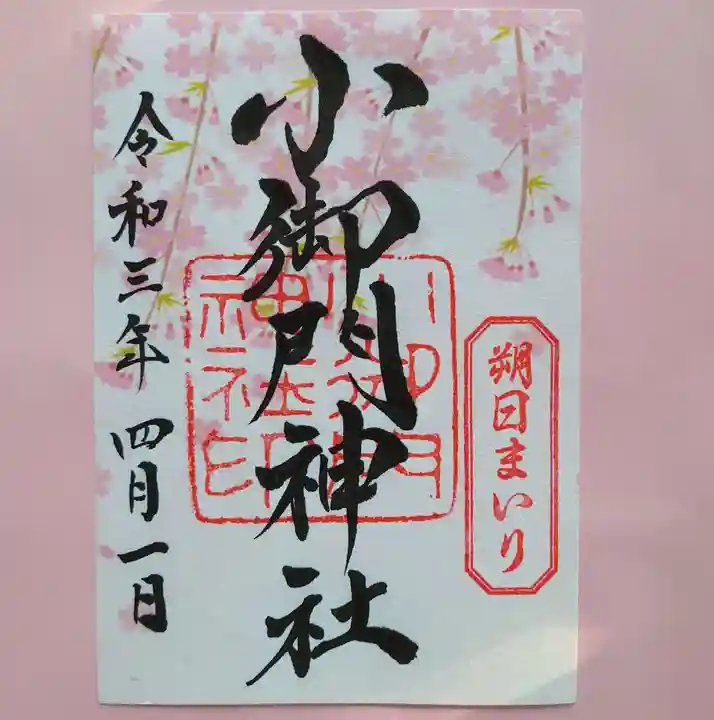 朔日まいり
小御門神社
小御門神社印
令和三年 四月一日